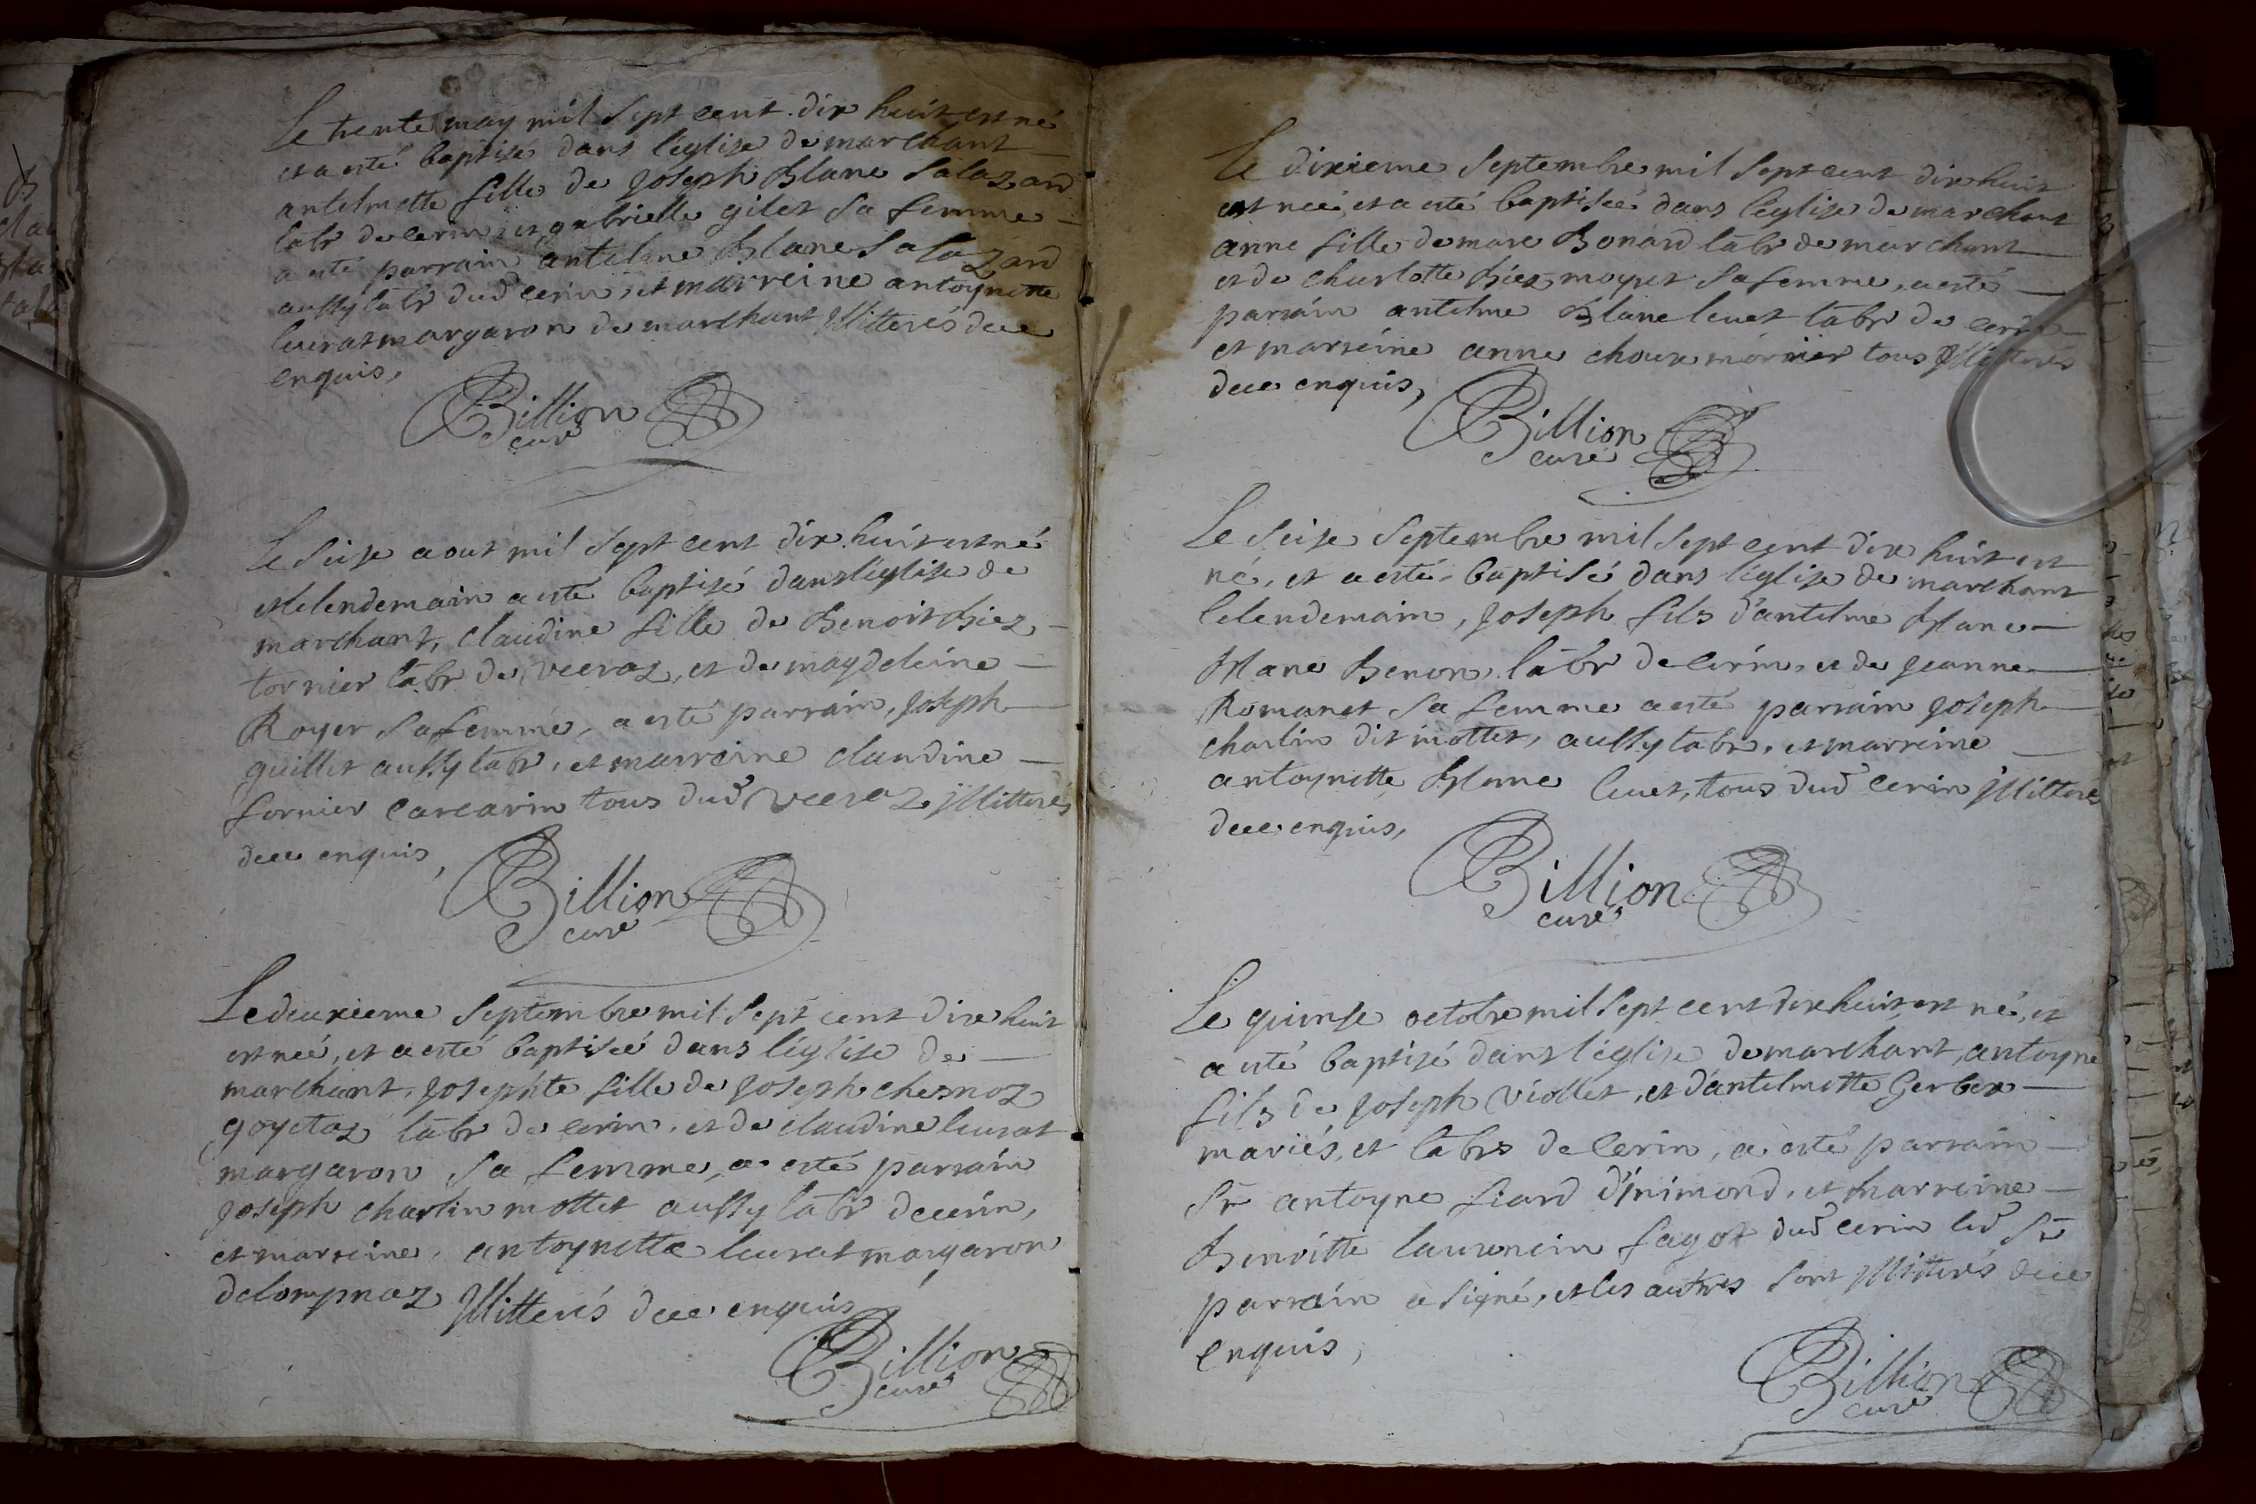 Le trente may mil sept cent dix huit est né
et a esté baptisé dans léglise de marchant
antelmette fille de Joseph Blanc Salazard
labr de cerin et gabrielle gilet sa femme
a esté parrain antelme Blanc Salazard
aussy labr dud cerin, et marreine antoynette
leurat margaron de marchant Jllitterés de ce
enquis,
Billion
curé
Le seise aout mil sept cent dix huit est né
et le lendemain a esté baptisé dans léglise de
marchant, claudine fille de Benoit hiez
tornier labr de veeraz, et de magdeleine
Royer sa femme, a esté parrain, Joseph
guillet aussy labr, et marreine claudine
fornier carcarin tous dud veeraz Jllitterés
de ce enquis,
Billion
curé
Le deuxieme septembre mil sept cent dix huit
est neé, et a esté baptiseé dans léglise de
marchant, Josephte fille de Joseph chesnoz
goyetaz labr de cerin, et de claudine leurat
margaron sa femme, a esté parrain
Joseph charlin mottet aussy labr de cerin,
et marreine, antoynette leurat margaron
de lompnaz Jllitterés de ce enquis,
Billion
curé
Le dixieme septembre mil sept cent dix huit
est neé, et a esté baptiseé dans léglise de marchant
anne fille de marc Bonard labr de marchant
et de charlotte hiez moyret sa femme, a esté
parrain antelme Blanc leuet labr de cerin
et marreine anne choux mornier tous Jllitterés
de ce enquis,
Billion
curé
Le seise septembre mil sept cent dix huit est
né, et a esté baptisé dans léglise de marchant
le lendemain, Joseph fils d'antelme Blanc
Blanc Benon labr de cerin, et de Jeanne
Romanet sa femme a esté parrain Joseph
charlin dit mottet, aussy labr, et marreine
antoynette Blanc leuet, tous dud cerin Jllitterés
de ce enquis,
Billion
curé
Le quinse octobre mil sept cent dix huit, est né, et
a esté baptisé dans léglise de marchant, antoyne
fils de Joseph viollet, et d'antelmette Gerbex
mariés, et labrs de cerin, a esté parrain
Sr antoyne fiard d'Jnimond, et marreine
Benoitte laurencin fagot dud cerin led Sr
parrain a signé, et les autres sont Jllitterés de ce
enquis,
Billion
curé